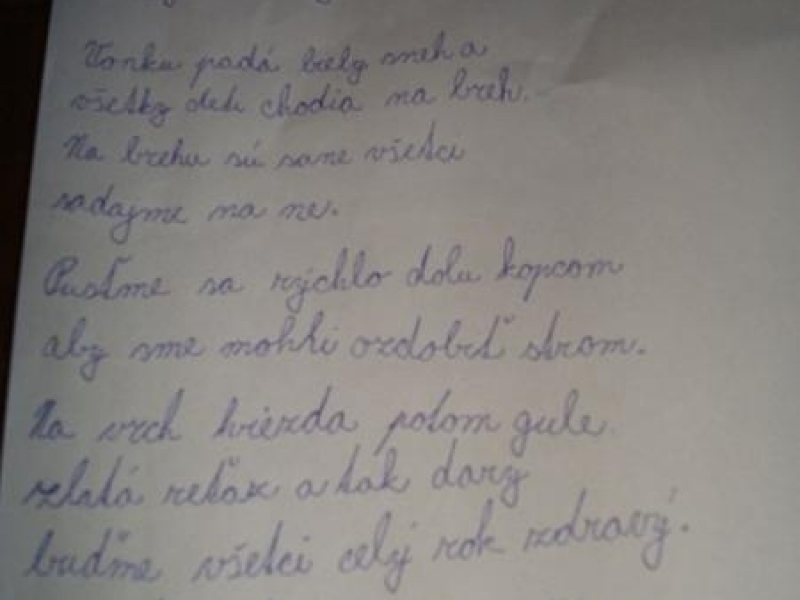 Vonku padá biely sneh a
všetky deti chodia na breh.
Na brehu sú sane všetci
sadajme na ne.
Pusťme sa rýchlo dolu kopcom
aby sme mohli ozdobiť strom.
Na vrch hviezda potom gule
zlatá reťaz a tak dary
buďme všetci celý rok zdravý.